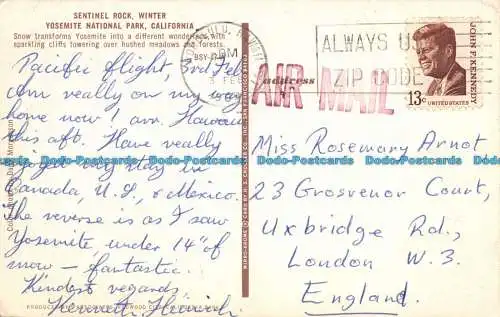 SENTINEL ROCK, WINTER
YOSEMITE NATIONAL PARK, CALIFORNIA
Snow transforms Yosemite into a different wonderland with
sparkling cliffs towering over hushed meadows and forests.
Pacific flight 3rd Feb
Am really on my way
home now! arr. Hawaii
this aft. Have really
enjoyed my stay in
Canada, U.S., & Mexico.
The reverse is as I saw
Yosemite, under 14" of
snow – fantastic.
Kindest regards,
Kenneth
PM
FEB
ALWAYS U
ZIP CODE
JOHN F. KENNEDY
13c UNITED STATES
AIR MAIL
address
Miss Rosemary Arnot
23 Grosvenor Court,
Uxbridge Rd.,
London W. 3.
England.
Dodo-Postcards.com Dodo-Postcards.com Dodo-Postcards.com Dodo-Postcards.com